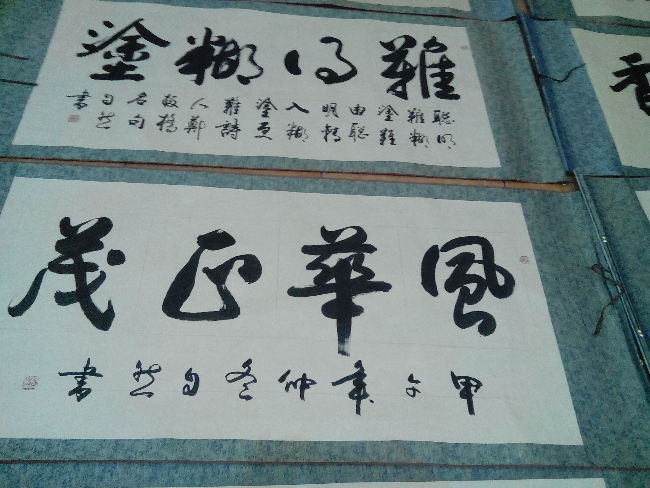 難得糊塗
聰明
難糊
塗難
由聰
明轉
入糊
塗更
難詩
人鄭
板橋
名句
自然
書
風華正茂
甲午年仲冬自然書
香